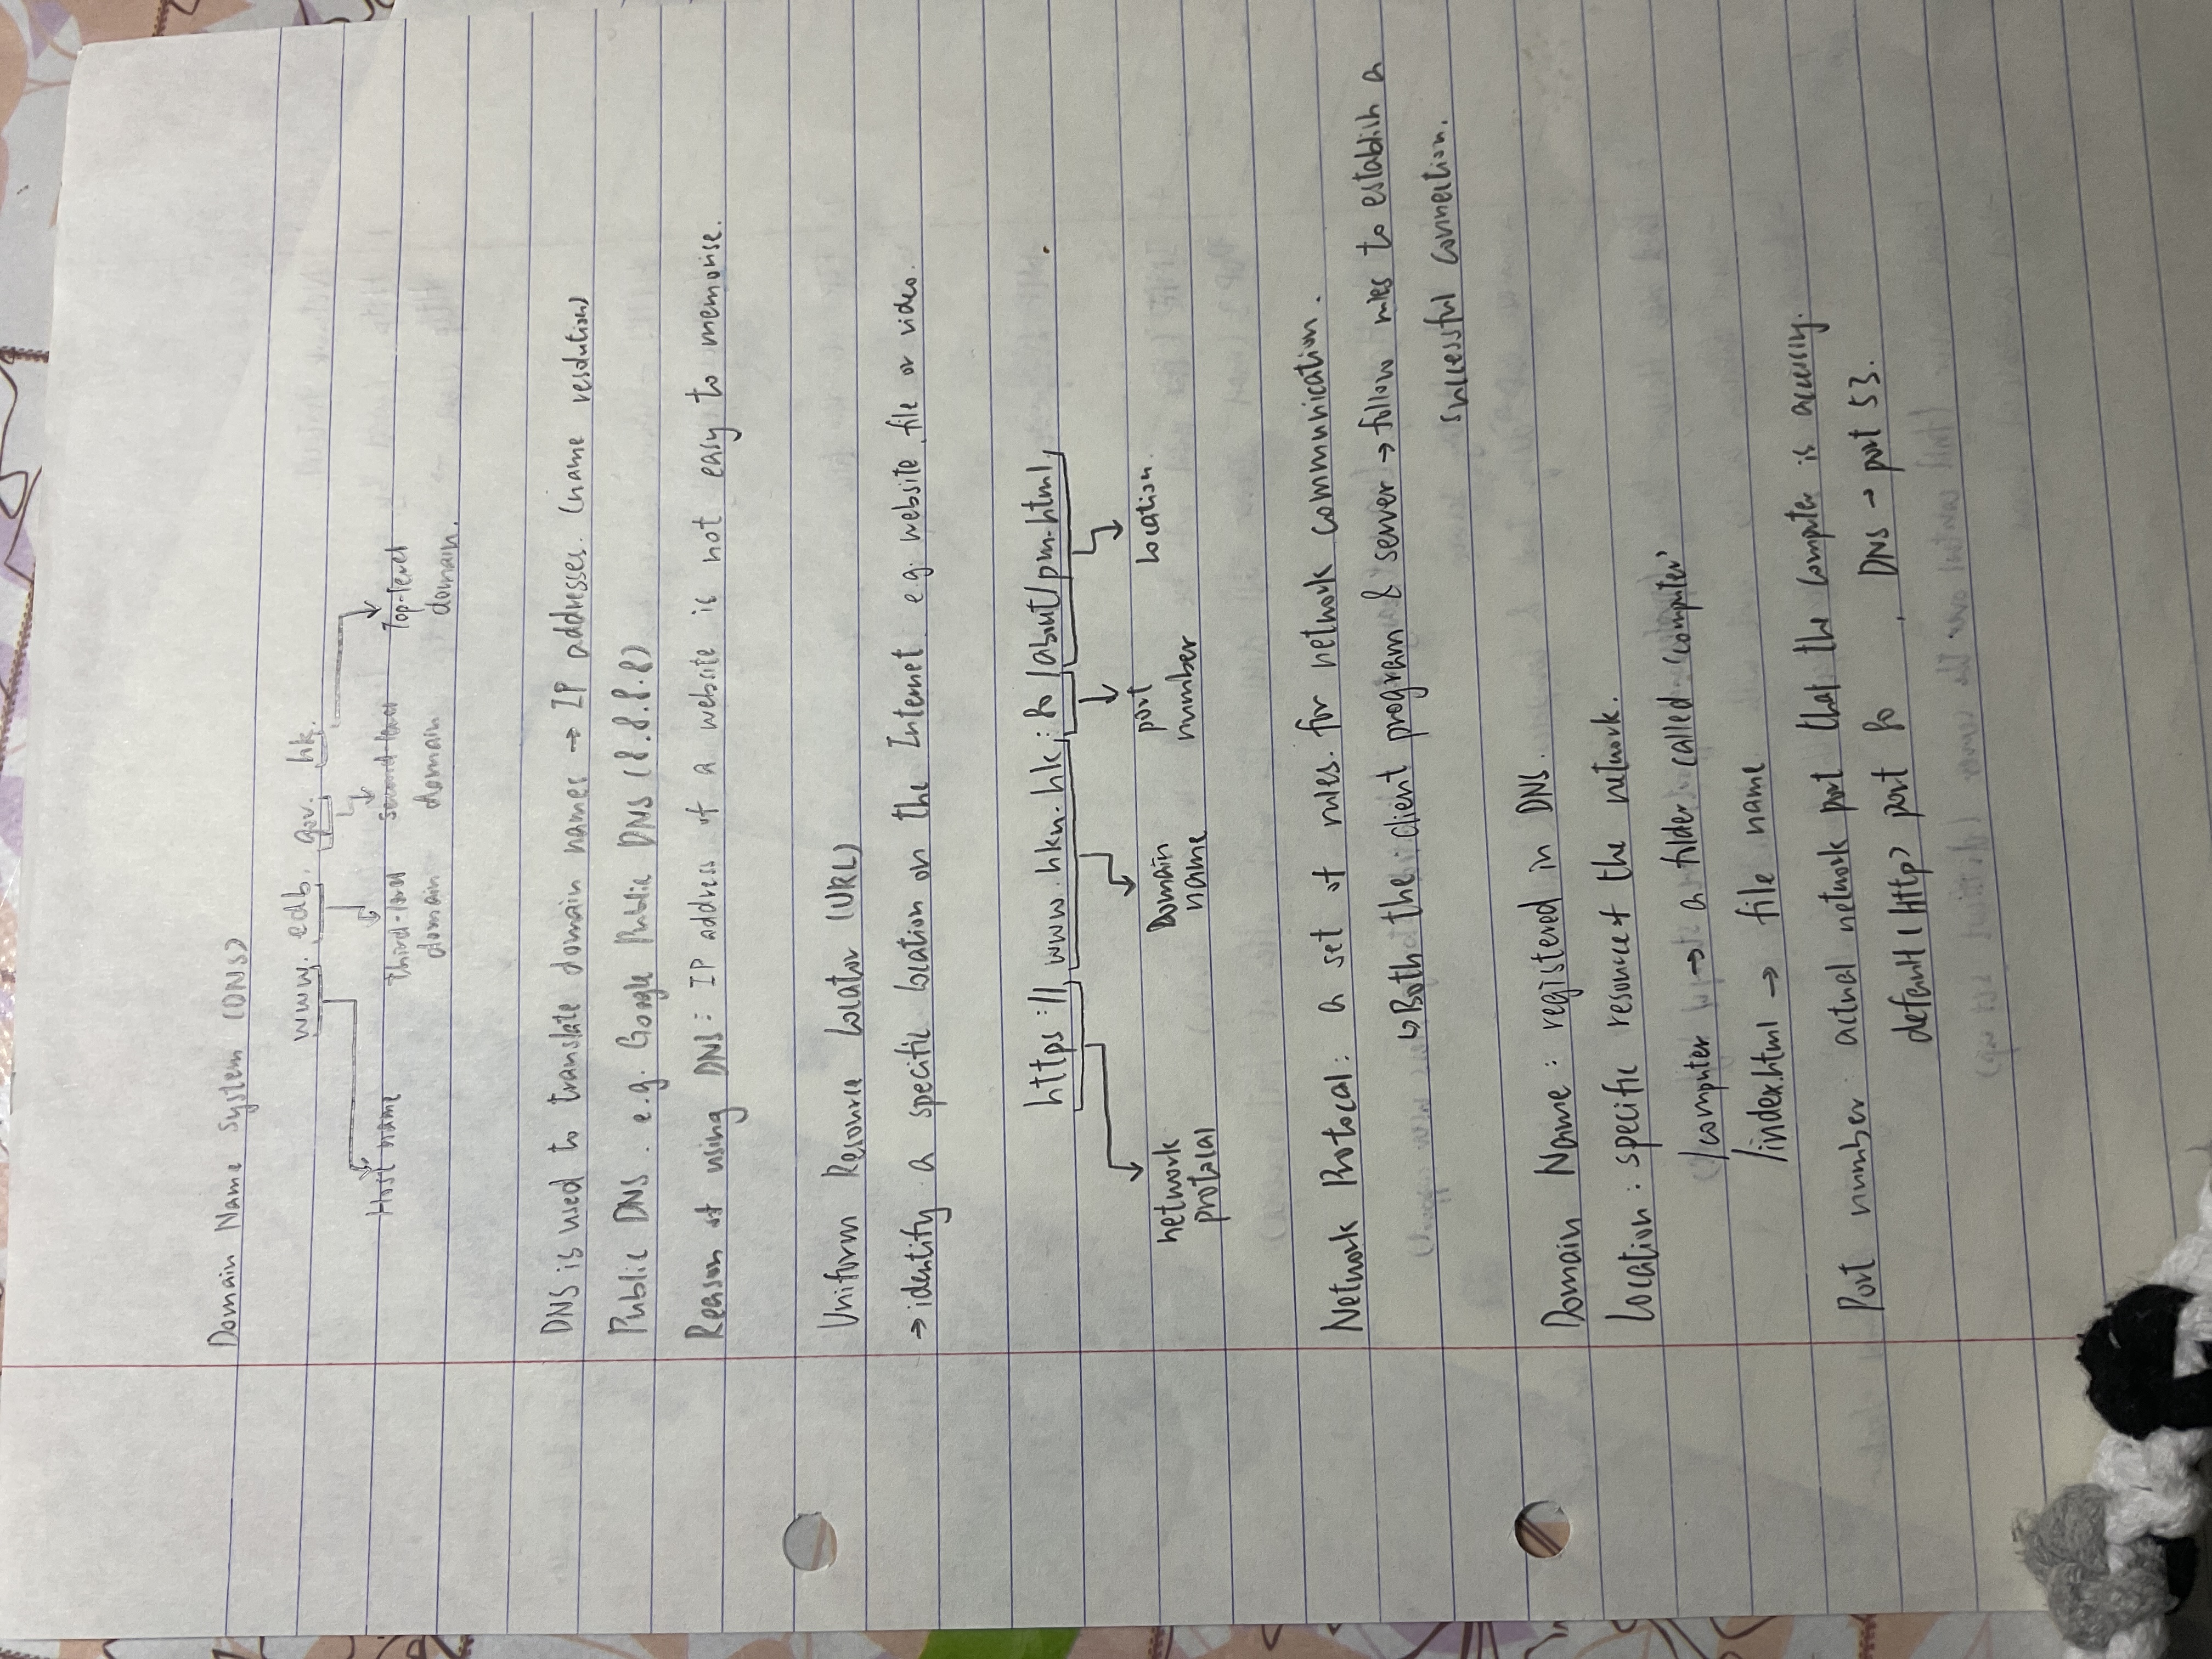 Domain Name System (DNS)
www. edb. gov. hk.
Host name third-level second-level Top-level
domain domain domain.
DNS is used to translate domain names → IP addresses. (name resolution)
Public DNS. e.g. Google Public DNS (8.8.8.8)
Reason of using DNS: IP address of a website is not easy to memorise.
Uniform Resource Locator (URL)
→ identify a specific location on the Internet e.g. website, file or video.
https:// www.hkn.hk:80/about/pm.html
network Domain port location.
protocal name number
Network Protocal: a set of rules for network communication.
↳ Both the client program & server → follow rules to establish a
successful connection.
Domain Name: registered in DNS.
Location: specific resource of the network.
/computer → a folder called 'computer'
/index.html → file name
Port number: actual network port that the computer is accessing.
default (http) port 80. DNS → port 53.